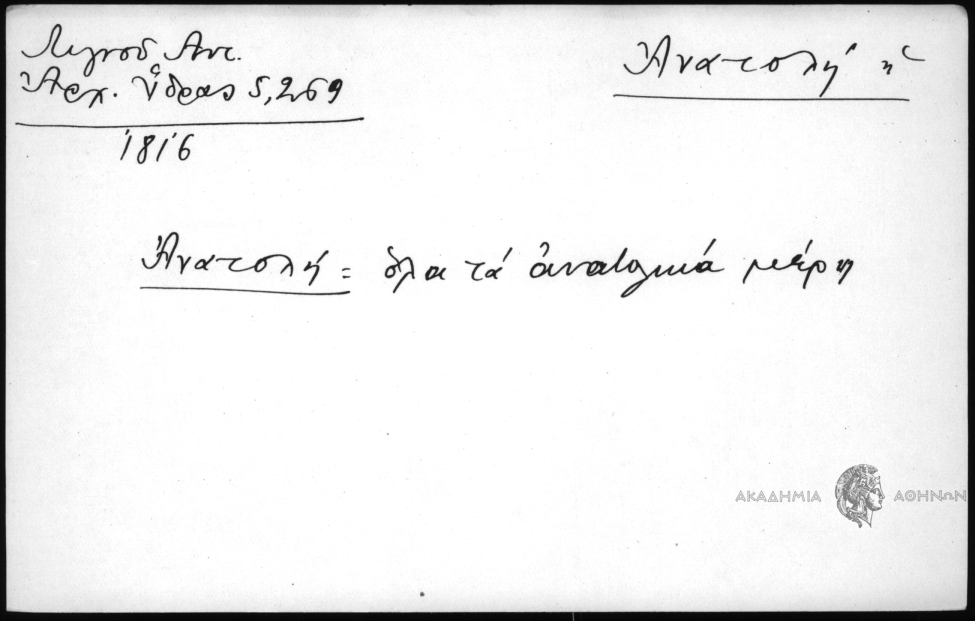 Λιγνοῦ Ἀντ.
Ἀρχ. Ὕδρας 5,269
1816
Ἀνατολή ἡ
Ἀνατολή = ὅλα τά ἀνατολικά μέρη
ΑΚΑΔΗΜΙΑ ΑΘΗΝΩΝ